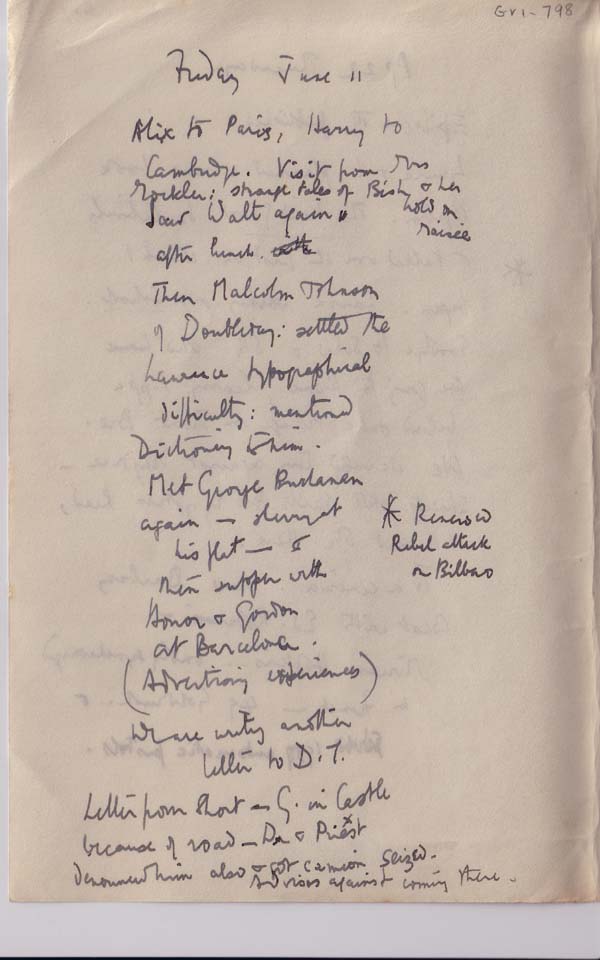 GV1-798
Friday June 11
Alix to Paris, Harry to
Cambridge. Visit from Mrs
strange tales of Bish & her
hold on
Saw Walt again
Maisie
after lunch.
Then Malcolm Johnson
of Doubleday: settled the
Lawrence typographical
difficulty: mentioned
Dictionary to him.
Met George Buchanan
again — sherry at
his flat — &
then supper with
Honor & Gordon
at Barcelona.
(Advertising experiences)
We are writing another
letter to D.T.
* Renewed
Rebel attack
on Bilbao
Letter from Short — G. in Castle
because of road — Dr & Priest
denounced him also & got camion seized.
Advises against coming there.